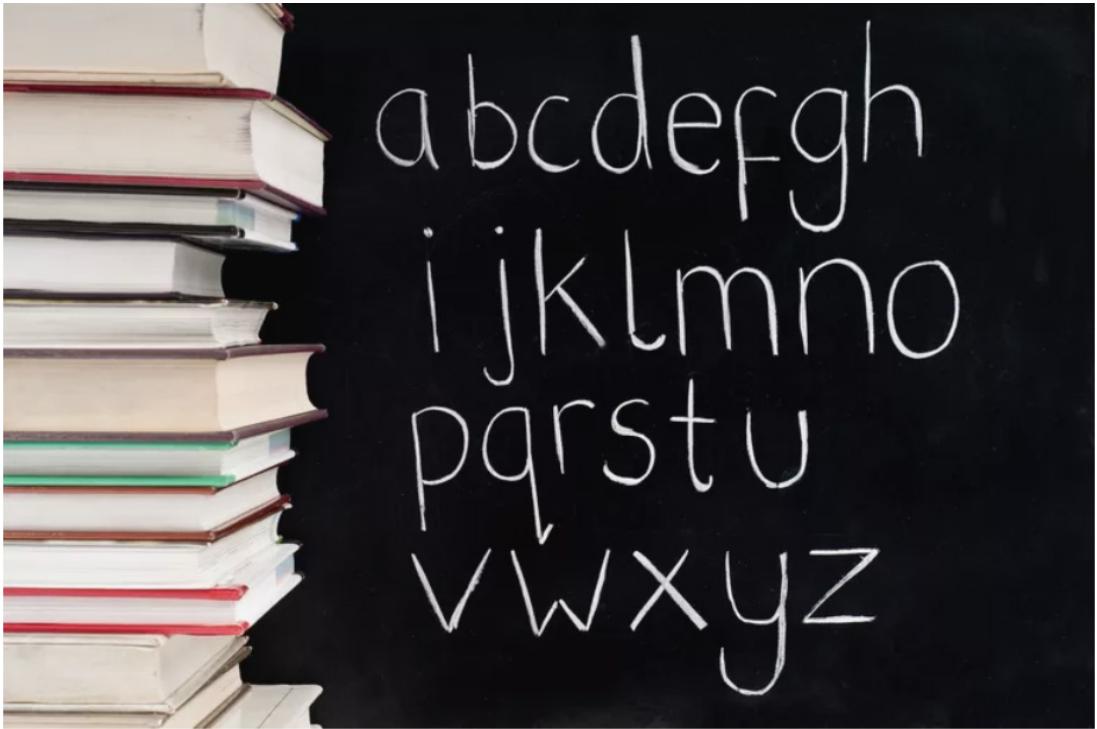 abcdefgh
ijklmno
pqrstu
vwxyz